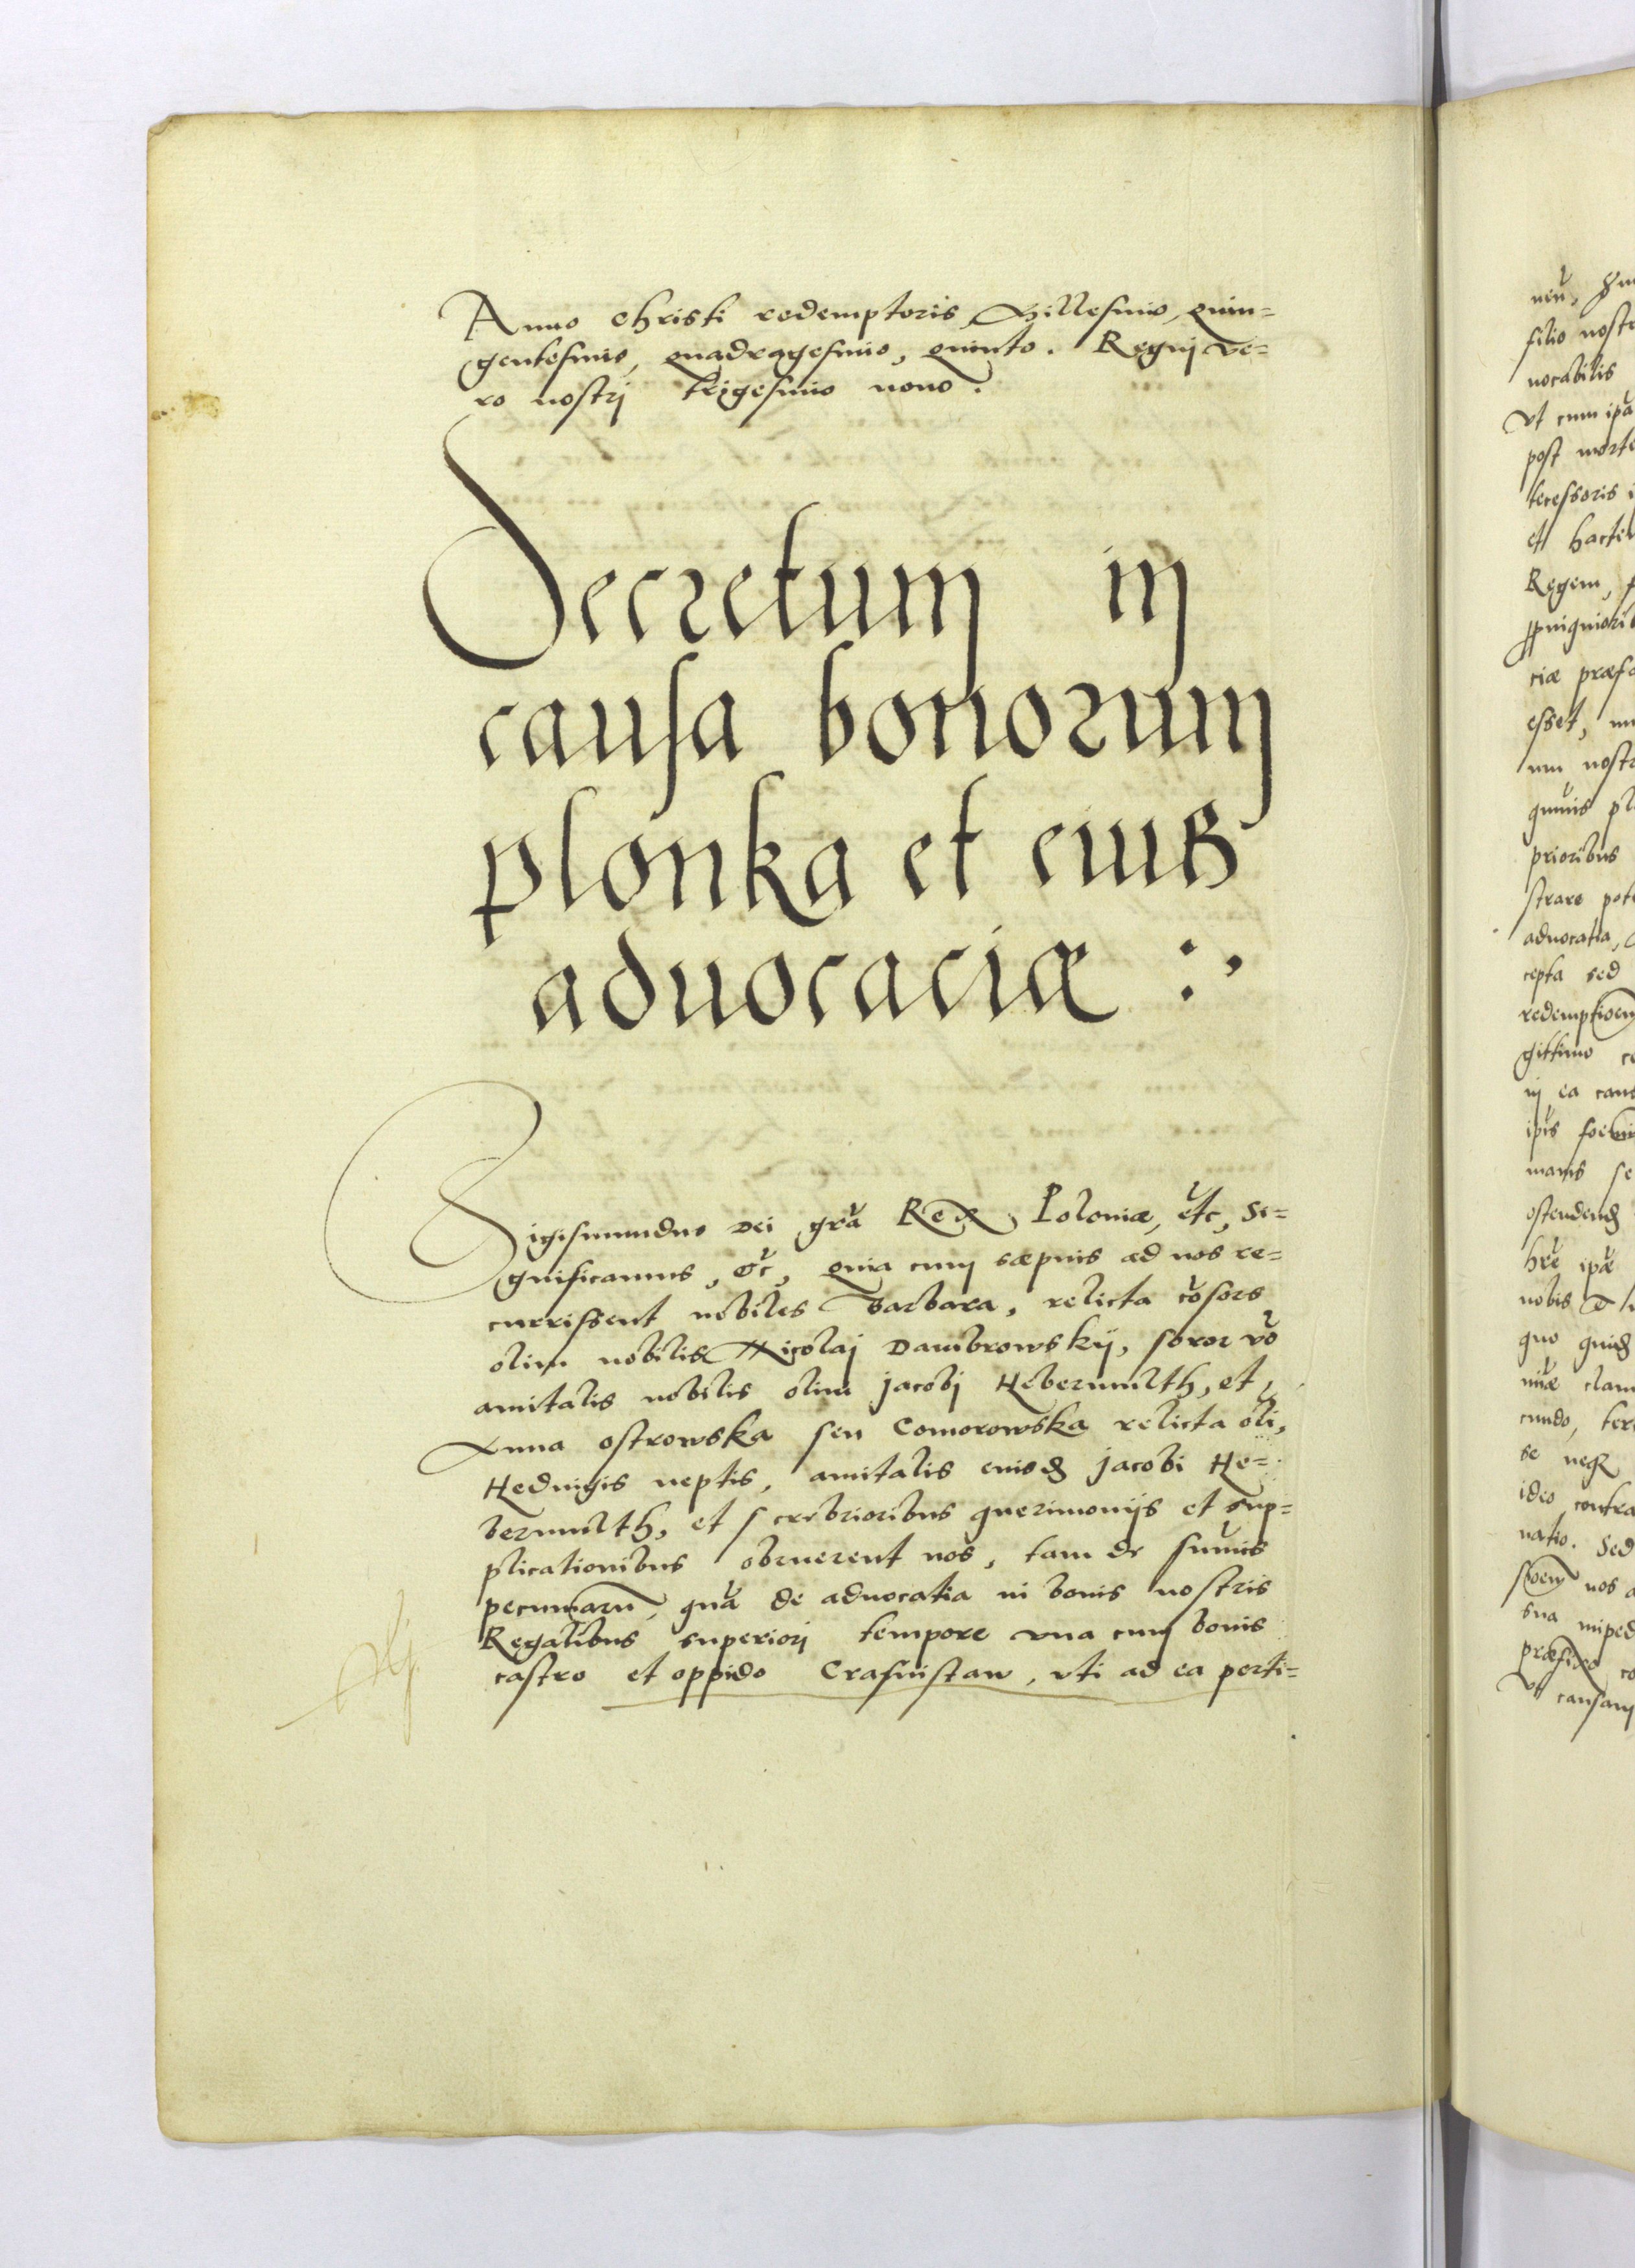 Anno Christi redemptoris Millesimo, quin=
gentesimo, quadragesimo, quinto. Regnj ve=
ro nostrj trigesimo nono.
Decretum in
causa bonorum
plonka et eius
aduocaciæ :,
Sigismundus Dei gra Rex Poloniæ, etc, Si=
gnificamus, &c, quia cum sæpius ad nos re=
currissent nobiles Barbara, relicta cosors
olim nobilis Nicolaj Dambrowskij, soror vo
amitalis nobilis olim Jacobj Heberumlth, et,
Anna ostrowska seu Comorowska relicta oli,
Heduigis neptis, amitalis eiusd Jacobi He=
berumlth, et crebrioribus querimonijs et sup=
plicationibus obruerent nos, tam de sumis
pecuniaru, qua de aduocatia in bonis nostris
Regalibus superiorj tempore vna cum bonis
castro et oppido Crasnistaw, vti ad ea perti=
neu,
filio nostr
uocabilis
Vt cum ipa
post morte
tecessoris i
et hacte
Regem,
ciæ præfa
esset,
um nostr
quuis pl
prioribus
strare pot
aduocatia,
cepta sed
redemptioem
gittimo
in ea caus
ipis
manis se
ostendend
hre ipæ
nobis
quo quid
clam
cundo, ter
se neq
ideo contra
natio. Sed
nos a
sua imped
præfixo co
Vt causam